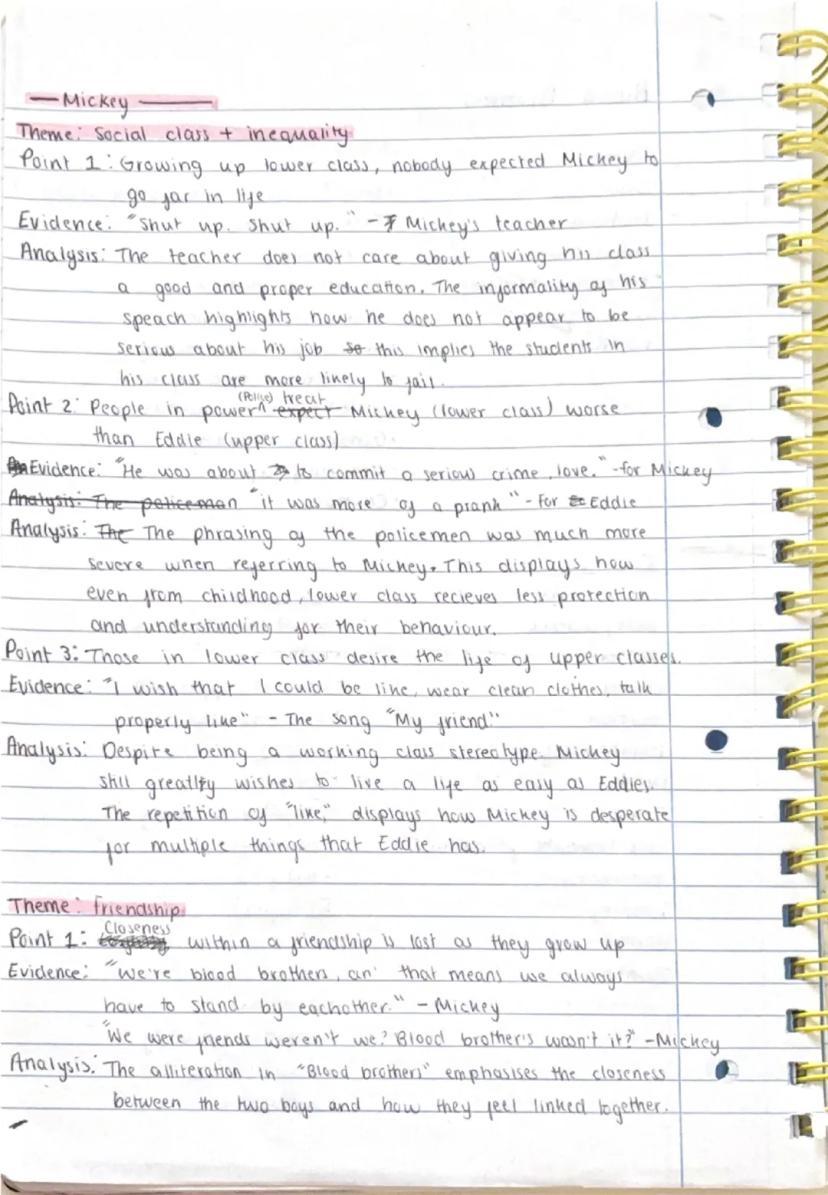 Mickey
Theme: Social class + inequality
Point 1: Growing up lower class, nobody expected Mickey to
go far in life
Evidence: "Shut up. Shut up." - Mickey's teacher
Analysis: The teacher does not care about giving his class
a good and proper education. The informality of his
speach highlights how he does not appear to be
serious about his job so this implies the students in
his class are more likely to fail.
Point 2: People in power (Police) expect treat Mickey (lower class) worse
than Eddie (upper class)
Evidence: "He was about to commit a serious crime, love." -for Mickey
Analysis: The policeman "it was more of a prank" - For Eddie
Analysis: The The phrasing of the policemen was much more
severe when referring to Mickey. This displays how
even from childhood, lower class recieves less protection
and understanding for their behaviour.
Point 3: Those in lower class desire the life of upper classes.
Evidence: "I wish that I could be like, wear clean clothes, talk
properly like" - The song "My friend"
Analysis: Despite being a working class stereotype, Mickey
still greatly wishes to live a life as easy as Eddies.
The repetition of "like," displays how Mickey is desperate
for multiple things that Eddie has.
Theme: friendship
Point 1: Closeness within a friendship is lost as they grow up
Evidence: "We're blood brothers, an' that means we always
have to stand by eachother." - Mickey
"We were friends weren't we? Blood brother's wasn't it?" -Mickey
Analysis: The alliteration in "Blood brothers" emphasises the closeness
between the two boys and how they feel linked together.